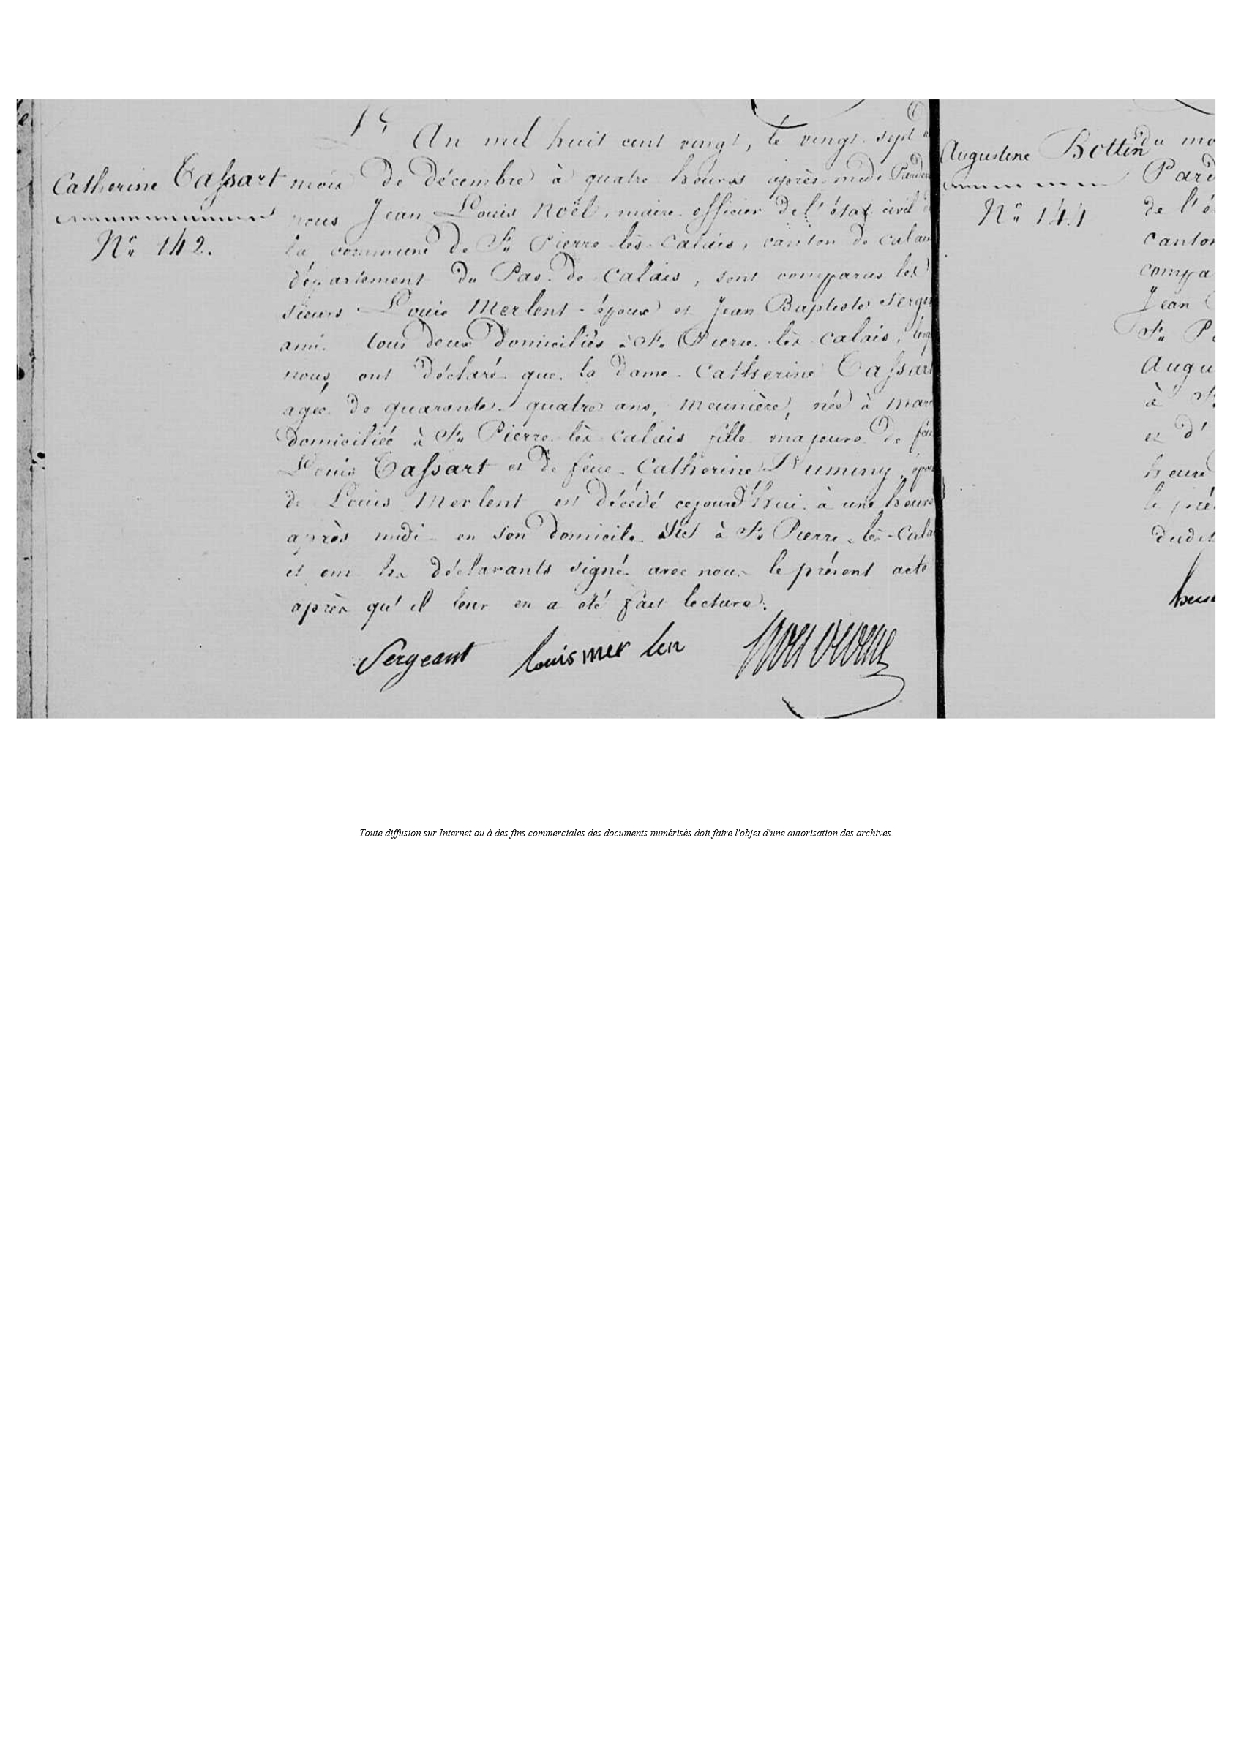 Catherine Tassart
N.° 142.
L'An mil huit cent vingt, le vingt sept
mois de décembre à quatre heures après midi Pardev
nous Jean Louis Noël, maire officier de l'état civil
la commune de St. Pierre-lès-Calais, canton de Calai
département du Pas-de-Calais, sont comparus les
sieurs Louis Merlent époux et Jean Baptiste Serge
ami tous deux domiciliés à St. Pierre-lès-Calais,
nous ont déclaré que la dame Catherine Tassart
agée de quarante quatre ans, meunière, née à Marc
domiciliée à St. Pierre-lès-Calais fille majeure de feu
Louis Tassart et de feue Catherine épou
de Louis Merlent est décédé cejourd'hui à une heure
après midi en son domicile sis à St. Pierre-lès-Cala
et ont les déclarants signé avec nous le présent acte
après qu'il leur en a été fait lecture.
Sergeant louis mer len
Augustine Bottin
N.° 141
du mo
Pard
de l'é
canton
compa
Jean
St. P
Augu
à St.
et d'
heure
le pré
dudit
Toute diffusion sur Internet ou à des fins commerciales des documents numérisés doit faire l'objet d'une autorisation des archives